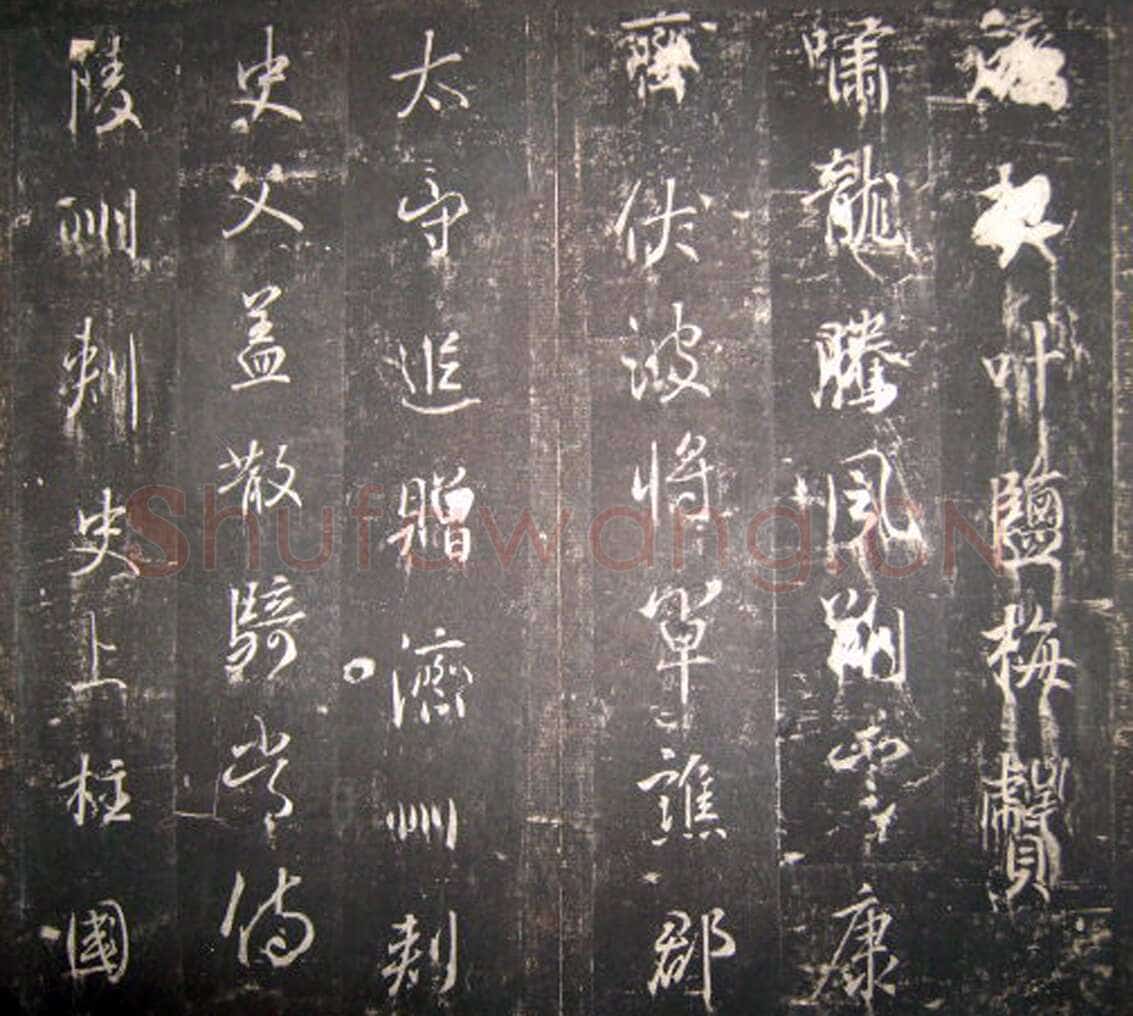 契叶鹽梅
嘯龍騰風雲康
齊伏波將軍譙郡
太守追贈濟州刺
史父盖散騎常侍
陵州刺史上柱國
Shufawang.CN